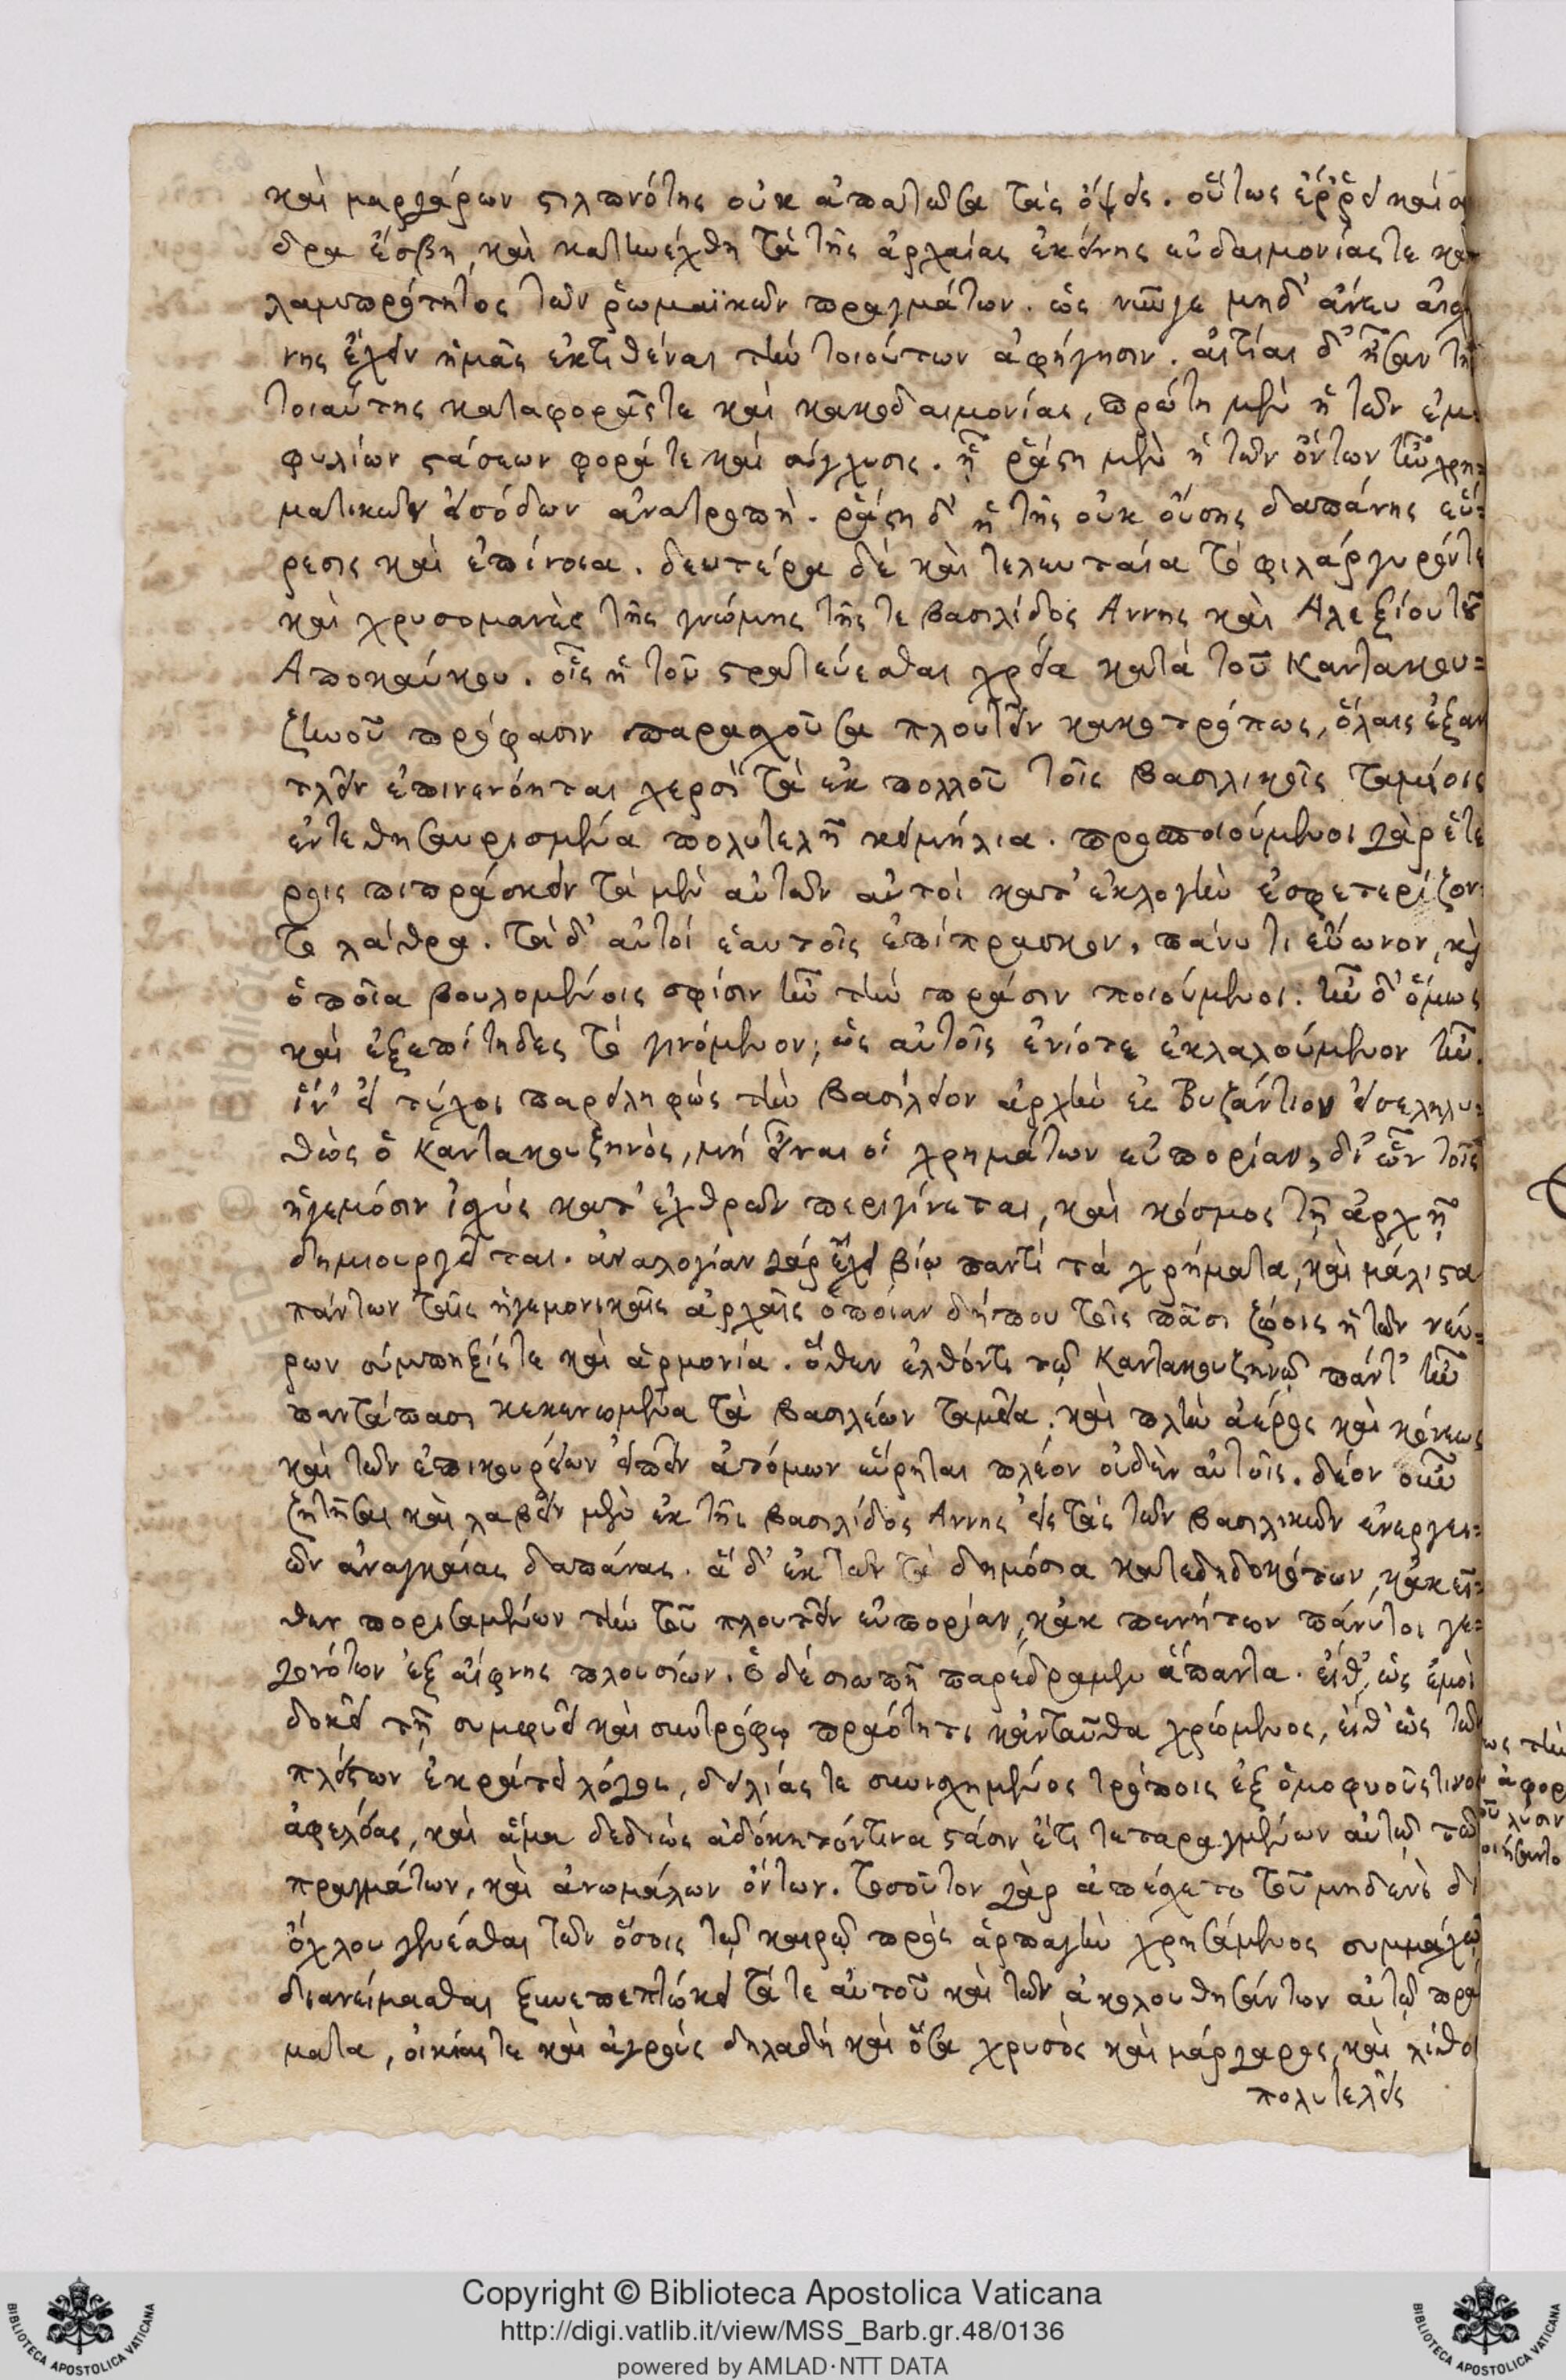 καὶ μαργάρων στιλπνότης οὐκ ἀπατῶσα τὰς ὄψεις. οὕτως ἐῤῥύει καὶ
δρα ἔσβη, καὶ κατηνέχθη τὰ τῆς ἀρχαίας ἐκείνης εὐδαιμονίας τε καὶ
λαμπρότητος τῶν ῥωμαϊκῶν πραγμάτων. ὡς νῦν γε μηδ' ἄνευ αἰσχύ
νης ἔχειν ἡμᾶς ἐκτιθέναι τὴν τοιούτων ἀφήγησιν. αἰτίαι δ' ἦσαν τῆς
τοιαύτης καταφορᾶς τε καὶ κακοδαιμονίας, πρώτη μὲν ἡ τῶν ἐμ
φυλίων στάσεων φορά τε καὶ σύγχυσις. ᾗ ῥᾴστη μὲν ἡ τῶν ὄντων ἦν χρη=
ματικῶν εἰσόδων ἀνατροπή. ῥᾴστη δ' ἡ τῆς οὐκ οὔσης δαπάνης εὕ=
ρεσις καὶ ἐπίνοια. δευτέρα δὲ καὶ τελευταία τὸ φιλάργυρόν τε
καὶ χρυσομανὲς τῆς γνώμης τῆς τε βασιλίδος Αννης καὶ Αλεξίου τοῦ
Αποκαύκου. οἷς ἡ τοῦ στρατεύεσθαι χρεία κατὰ τοῦ Καντακου=
ζηνοῦ πρόφασιν παρασχοῦσα πλουτεῖν κακοτρόπως, ὅλαις ἐξαν
τλεῖν ἐπινενόηται χερσὶ τὰ ἐκ πολλοῦ τοῖς βασιλικοῖς ταμείοις
ἐντεθησαυρισμένα πολυτελῆ κειμήλια. προσποιούμενοι γὰρ ἑτέ
ροις πιπράσκειν τὰ μὲν αὐτῶν αὐτοὶ κατ' ἐκλογὴν ἐσφετερίζον
το λάθρα. τὰ δ' αὐτοὶ ἑαυτοῖς ἐπίπρασκον, πάνυ τι εὔωνον, καὶ
ὁποῖα βουλομένοις σφίσιν ἦν τὴν πράσιν ποιούμενοι. ἦν δ' ὅμως
καὶ ἐξεπίτηδες τὸ γινόμενον, ὡς αὐτοῖς ἐνίοτε ἐκλαλούμενον ἦν.
ἵν' εἰ τύχοι παρειληφὼς τὴν βασίλειον ἀρχὴν ἐς Βυζάντιον εἰσεληλυ=
θὼς ὁ Καντακουζηνὸς, μὴ εἶναι οἱ χρημάτων εὐπορίαν, δι' ὧν τοῖς
ἡγεμόσιν ἰσχὺς κατ' ἐχθρῶν περιγίνεται, καὶ κόσμος τῇ ἀρχῇ
δημιουργεῖται. ἀναλογίαν γὰρ ἔχει βίῳ παντὶ τὰ χρήματα, καὶ μάλιστα
πάντων ταῖς ἡγεμονικαῖς ἀρχαῖς ὁποίαν δήπου τοῖς πᾶσι ζώοις ἡ τῶν νεύ=
ρων σύμπηξίς τε καὶ ἁρμονία. ὅθεν ἐλθόντι τῷ Καντακουζηνῷ πάντ' ἦν
παντάπασι κεκενωμένα τὰ βασιλέων ταμεῖα. καὶ πλὴν ἀέρος καὶ κόνεως
καὶ τῶν ἐπικουρείων εἰπεῖν ἀτόμων εὕρηται πλέον οὐδὲν αὐτοῖς. δέον οὖν
ζητῆσαι καὶ λαβεῖν μὲν ἐκ τῆς βασιλίδος Αννης εἰς τὰς τῶν βασιλικῶν ἐνεργει=
ῶν ἀναγκαίας δαπάνας. ἃ δ' ἐκ τῶν τὰ δημόσια κατεδηδοκότων, κἀκεῖ=
θεν πορισαμένων τὴν τοῦ πλουτεῖν εὐπορίαν, κἀκ πενήτων πάνυ τοι γε=
γονότων ἐξαίφνης πλουσίων. ὁ δὲ σιωπῇ παρέδραμεν ἅπαντα. εἴθ', ὡς ἐμοὶ
δοκεῖ τῇ συμφυεῖ καὶ συντρόφῳ πραότητι κἀνταῦθα χρώμενος, εἴθ' ὡς τῶν
πλείστων ἐκράτει λόγος, δειλίας τε συνειλημμένος τρόποις ἐξ ὁμοφυοῦς τινος
ἀφελείας, καὶ ἅμα δεδιὼς ἀδόκητόν τινα στάσιν ἔτι τεταραγμένων αὐτῷ τῶν
πραγμάτων, καὶ ἀνωμάλων ὄντων. τοσοῦτον γὰρ ἀπέσχετο τοῦ μηδενὶ δι'
ὄχλου γενέσθαι τῶν ὅσοις τῷ καιρῷ πρὸς ἁρπαγὴν χρησάμενος συμμάχῳ
διανείμασθαι ξυνεπεπτώκει τά τε αὐτοῦ καὶ τῶν ἀκολουθησάντων αὐτῷ πρά
ματα, οἰκίας τε καὶ ἀγροὺς δηλαδὴ καὶ ὅσα χρυσὸς καὶ μάργαρος, καὶ λίθοι
πολυτελεῖς
Copyright © Biblioteca Apostolica Vaticana
http://digi.vatlib.it/view/MSS_Barb.gr.48/0136
powered by AMLAD·NTT DATA
BIBLIOTECA APOSTOLICA VATICANA
BIBLIOTECA APOSTOLICA VATICANA